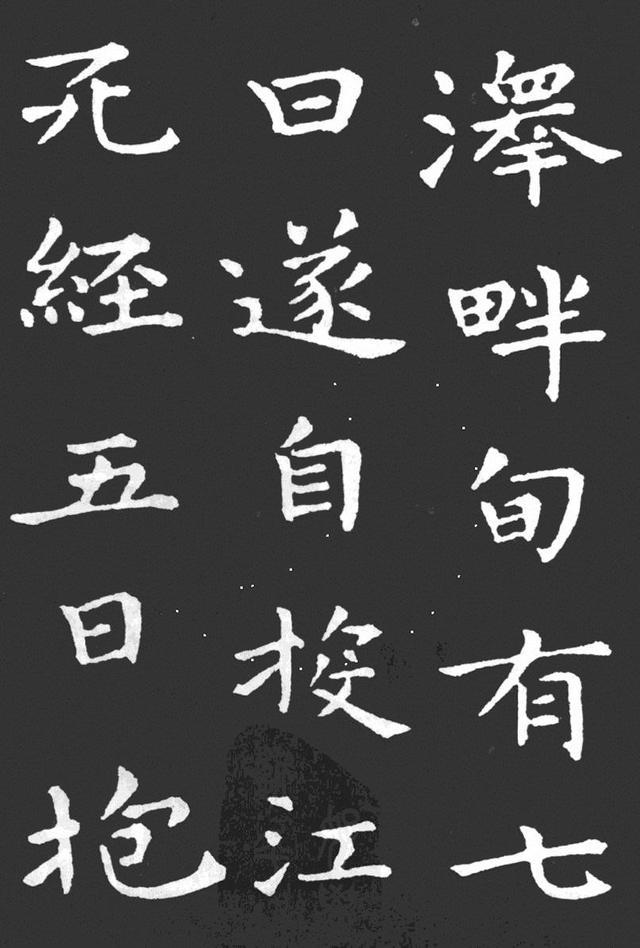 澤畔旬有七
日遂自投江
死經五日抱